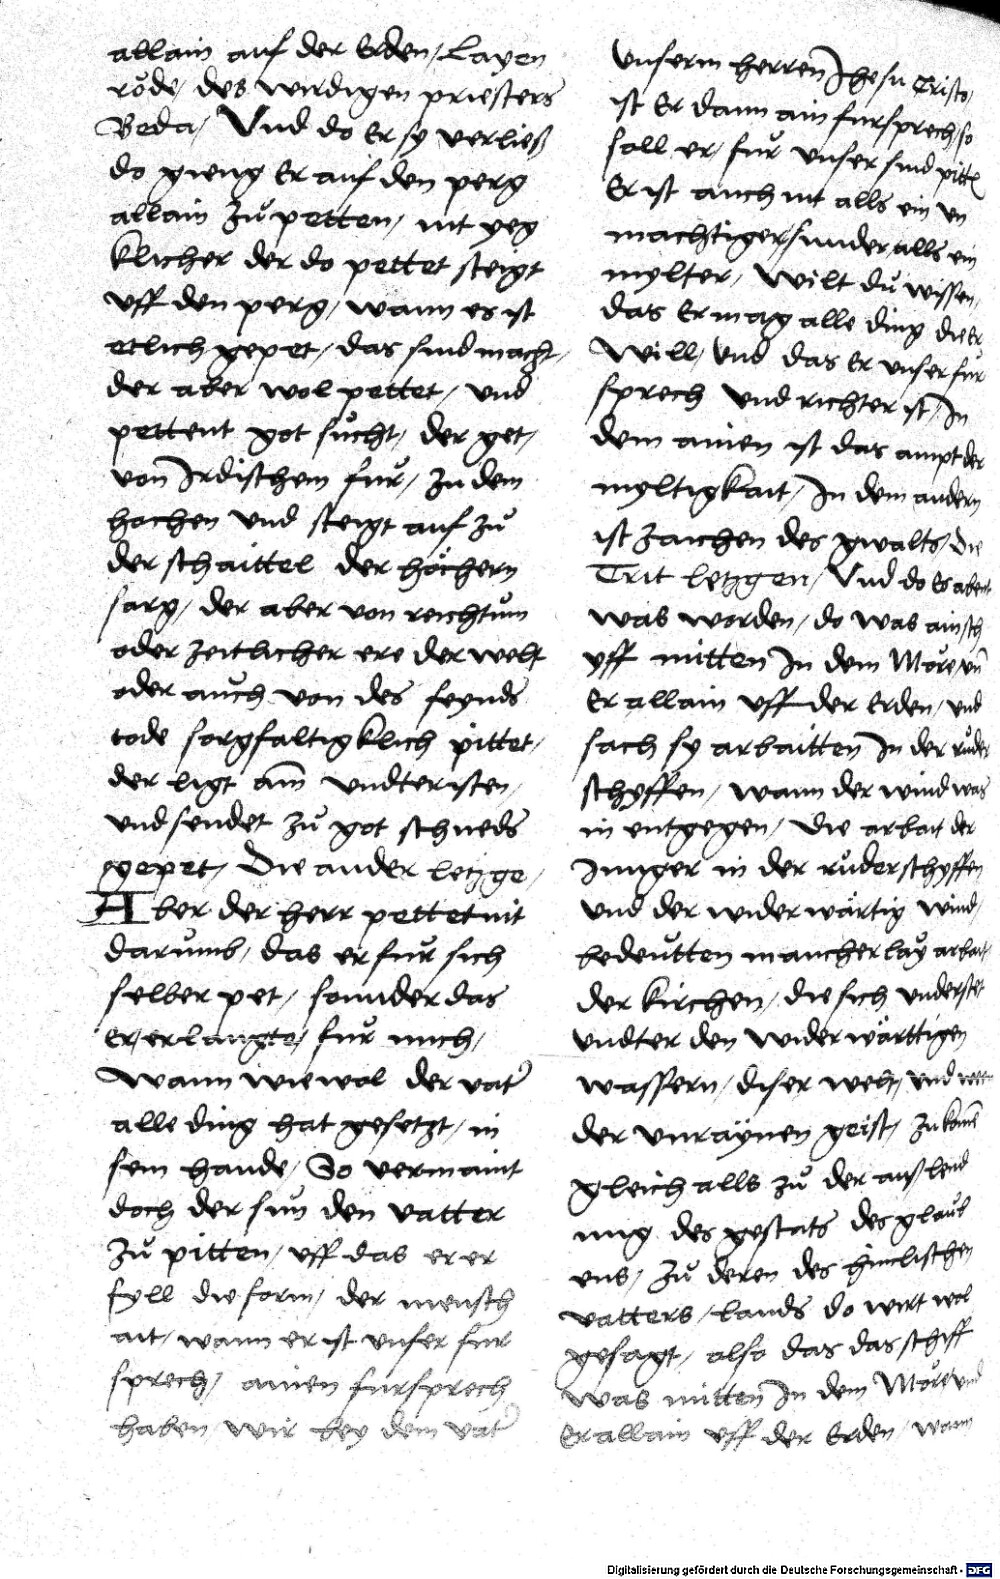 allain auf der Erden / Layen
rӧde / des wirdigen priesters
Beda / Vnd do Er sy verließ
do gieng Er auf den perg
allain zů petten / nit yeg
klicher der do pettet steigt
vff den perg / wann es ist
etlich gepet / das sund macht /
der aber wol pettet / vnd
pettent got sůcht / der get /
von Irdischem fůr / zu dem
hochen vnd steigt auf zů
der schaittel der hӧchern
sorg / der aber von reichtům
oder zeitlicher ere der welt
oder aůch von des feynds
tode sorgfaltigklich pittet /
der ligt am vndteristen /
vnd sendet zů got schneds
gepet / Die ander letzge /
Aber der herr pettet nit
darůmb / das er fůr sich
selber pet / sonnder das
Er / erlangte / fůr mich /
Wann wie wol der vat͛
alle ding hat gesetzt / in
sein hande / So vermaint
doch der sun den vatter
zů pitten / vff das er er
fyll die form / der mensch
ait / wann er ist vnser fur
sprech / ainen fursprech
haben wir bey dem vat͛
vnserm herren Jhesu Cristo /
ist Er dann ain fursprech / so
soll er / fůr vnser sund pitten
Er ist auch nit alls ein vn
machtiger / sunder alls ein
mylter / wilt dů wissen /
das Er mag alle ding die Er
will / vnd das Er vnser fůr
sprech vnd richter ist / In
dem ainen ist das ampt der
myltigkait / In dem andern
ist zaichen des gwalts / die
Trit letzgen / Vnd do Es abent
was worden / do was ain sch
yff mitten In dem Mӧre vn̄
Er allain vff der Erden / vnd
sach sy arbaitten In der růder
schyffen / wann der wind was
in entgegen / Die arbait der
Junger in der růderschyffen
vnd der widerwӓrtig wind /
bedeůtten mancherlay arbait /
der kirchen / die sich vnderstet
vndter den widerwӓrttigen
wassern / diser welt / vnd
der vnraÿnen geist / zu komē
gleich alls zů der außlend
ung des gestats des glaub
ens / zů deren des himlischen
vatters / lands do wirt wol
gesagt / also das das schiff
was mitten In dem Mӧre vnd
Er allain vff der Erden / wann
Digitalisierung gefördert durch die Deutsche Forschungsgemeinschaft - DFG